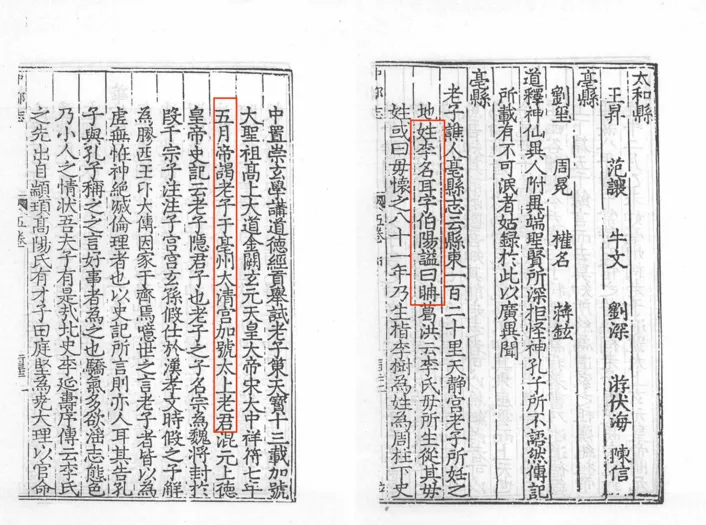 太和縣
王昇 范讓 牛文 劉深 游伏海 陳信
亳縣
劉璽 周冕 權名 蔣鉉
道釋神仙異人附異端聖賢所深拒怪神孔子所不語然傳記
所載有不可泯者姑録於此以廣異聞
亳縣
老子譙人亳縣志云縣東一百二十里天静宫老子所姓之
地姓李名耳字伯陽諡曰聃葛洪云李氏母所生從其母
姓或曰母懷之八十一年乃生指李樹為姓為周柱下史
中置崇玄學講道德經首舉試老子策天寶十三載加號
大聖祖高上大道金闕玄元天皇大帝宋大中祥符七年
五月帝謁老子于亳州太清宫加號太上老君混元上德
皇帝史記云老子隱君子也老子之子名宗為魏將封於
段干宗子注注子宫宫玄孫假仕於漢孝文時假之子解
為膠西王卭太傅因家于齊焉噫世之言老子者皆以為
虛無恠神絶滅倫理者也以史記所言則亦人耳其告孔
子與孔子稱之之言好事者為之也驕氣多欲淫志態色
乃小人之情狀吾夫子有是哉北史李延壽序傳云李氏
之先出自顓頊高陽氏有才子曰庭堅為堯大理以官命
國五卷